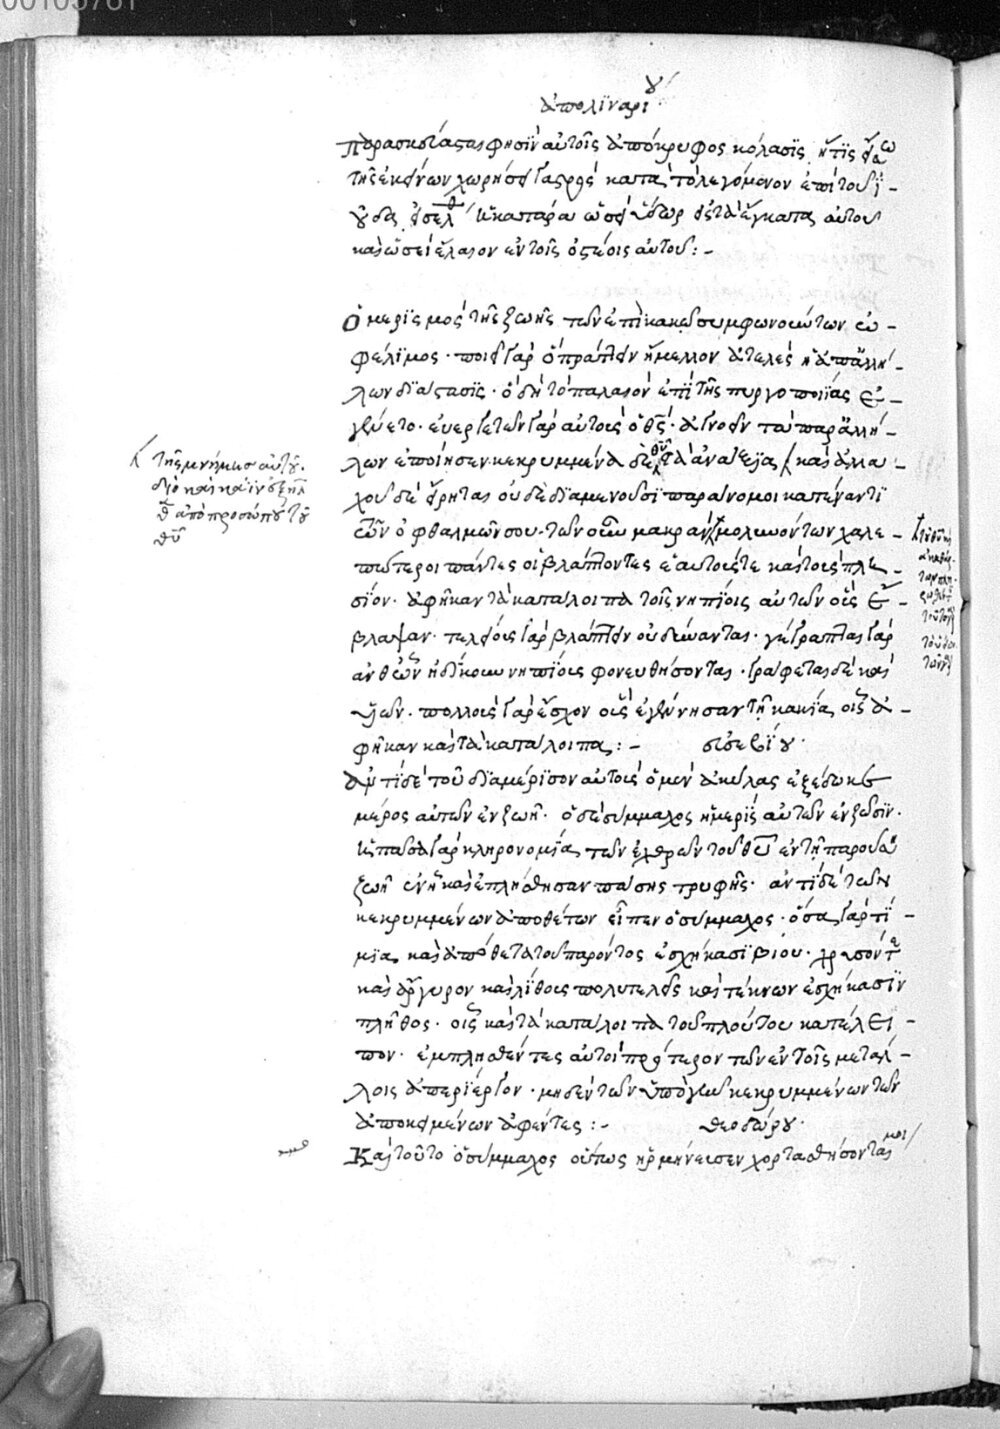 00105781
ἀπολϊναρίου
παρασκευάσαι φησὶν αὐτοῖς ἀπόκρυφος κόλασϊς, ἥτϊς ἔσω
τῆς ἐκείνων χωρήσει γαστρός κατὰ τὸ λεγόμενον ἐπὶ τοῦ ϊ -
ούδα εἰσελθέτω κατάρα ὡσεὶ ὕδωρ εἰς τὰ ἔγκατα αὐτοῦ
καὶ ὡσεὶ ἔλαιον ἐν τοῖς ὀστέοις αὐτοῦ : -
ὁ μερϊσμὸς τῆς ζωῆς τῶν ἐπὶ κακῷ συμφωνούντων ὠ -
φέλϊμος · ποιεῖ γὰρ ὃ πράττειν ἤμελλον ἀτελὲς ἡ ἀπ' ἀλλή -
λων δϊάστασϊς · ὃ δὴ τὸ παλαιὸν ἐπὶ τῆς πυργοποιΐας ἐ -
γένετο · εὐεργετῶν γὰρ αὐτοὺς ὁ θς · ἀγνοεῖν τὰ παρ' ἀλλή -
λων ἐποίησεν κεκρυμμένα δὲ θυ τὰ ἀναξια καὶ ἀλλα -
χοῦ δὲ εἴρηται οὐδὲ δϊαμενοῦσϊ παράνομοι κατέναντϊ
τῶν ὀφθαλμῶν σου · τῶν οὖν μακρὰν μολυνόντων χαλε -
πώτεροι πάντες οἱ βλάπτοντες ἑαυτούς τε καὶ τοὺς πλη -
σϊον · ἀφῆκαν τὰ κατάλοιπα τοῖς νηπϊοις αὐτῶν οὓς ἔ -
βλαψαν · τελείοις γὰρ βλάπτειν οὐ δύνανται · γέγραπται γὰρ
ἀνθ' ὧν ἠδίκουν νηπϊους φονευθήσονται · γράφεται δὲ καὶ
ὑῶν · πολλοὺς γὰρ ἔσχον οὓς ἐγέννησαν τῇ κακίᾳ οἷς ἀ -
φῆκαν καὶ τὰ κατάλοιπα : - εὐσεβίου ·
ἀντϊ δὲ τοῦ δϊαμέρϊσον αὐτούς ὁ μὲν ἀκύλας ἐξέδωκε
μέρος αὐτῶν ἐν ζωῇ · ὁ δὲ σύμμαχος ἡ μερϊς αὐτῶν ἐν ζωῇ ·
ἡ πᾶσα γὰρ κληρονομϊα τῶν ἐχθρῶν τοῦ θυ ἐν τῇ παρούσῃ
ζωῇ ἐν ᾗ καὶ ἐπλήσθησαν πάσης τρυφῆς · ἀντϊ δὲ τῶν
κεκρυμμένων ἀποθέτων εἶπεν ὁ σύμμαχος · ὅσα γὰρ τϊ -
μϊα καὶ ἀπόθετα τοῦ παρόντος ἐσχήκασϊ βίου · χρυσόν τε
καὶ ἄργυρον καὶ λίθους πολυτελεῖς καὶ τέκνων ἐσχήκασϊν
πλῆθος · οἷς καὶ τὰ κατάλοιπα τοῦ πλούτου κατέλει -
πον · ἐμπλησθέντες αὐτοὶ πρότερον τῶν ἐν τοῖς μετάλ -
λοις ἀπερϊέργων · μηδὲν τῶν ὑπὸ γῆν κεκρυμμένων τῶν
ἀποκειμένων ἀφέντες : - θεοδώρου ·
Καὶ τοῦτο ὁ σύμμαχος οὕτως ἡρμήνευσεν χορτασθήσονται
μοι
τῆς μνήμης αὐτοῦ ·
διὸ καὶ κάϊν ἐξῆλ
θεν ἀπὸ προσώπου τοῦ
θυ